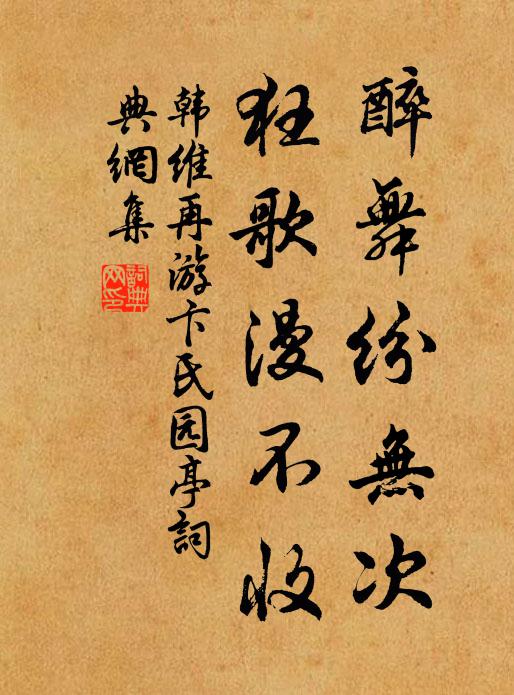 醉舞紛無次
狂歌漫不收
韩維再游卞氏园亭詞
典網集
詞典网印